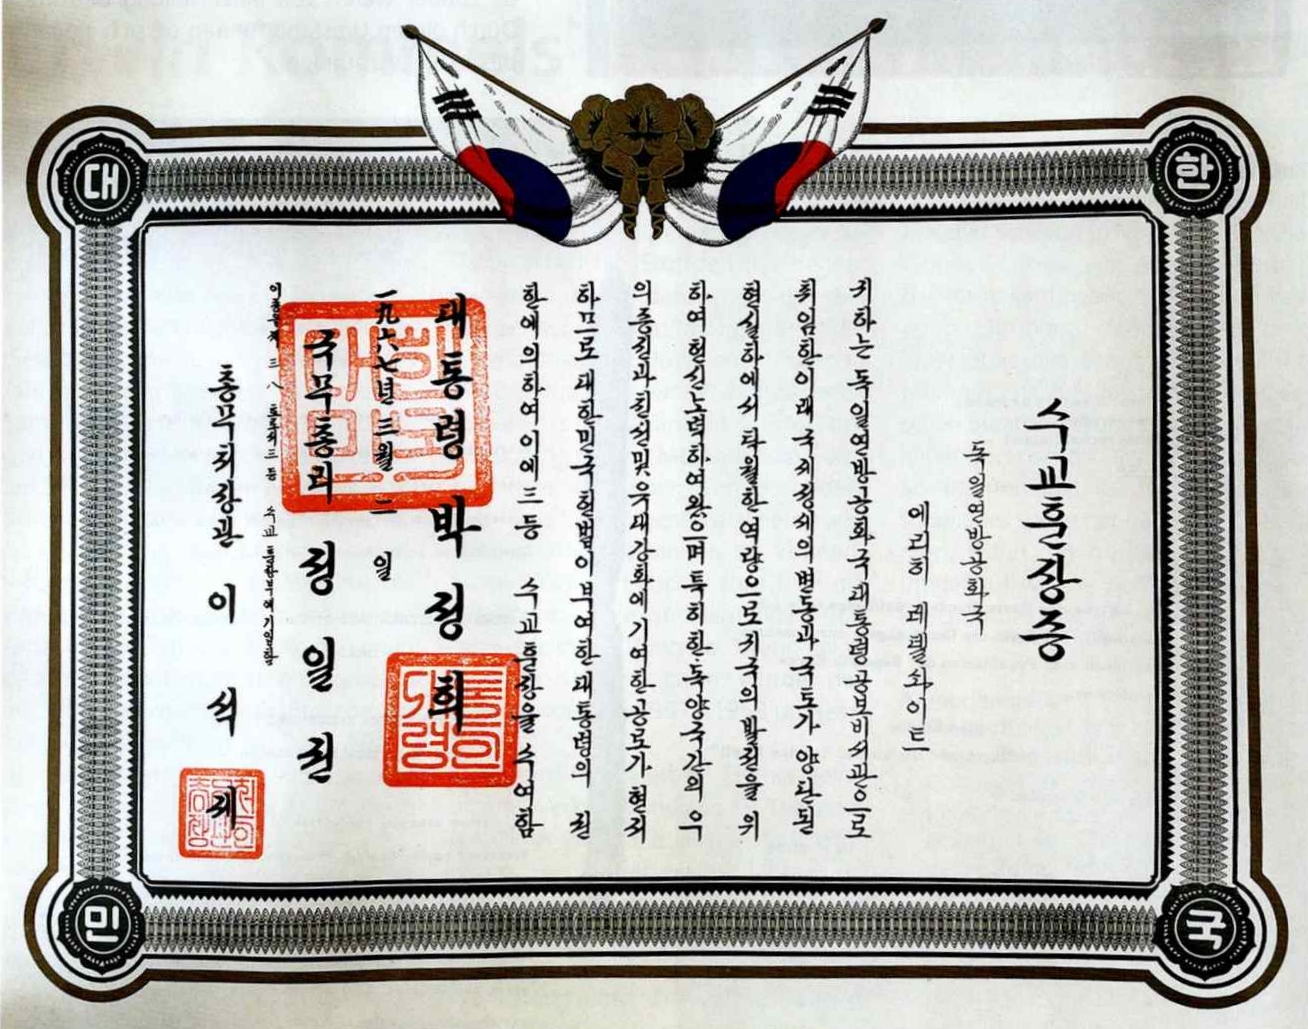 대 한
수교훈장증
독일연방공화국
에리히
귀하는 독일연방공화국 대통령 공보비서관으로
취임한 이래 국제정세의 변동과 국토가 양단된
현실하에서 탁월한 역량으로 귀국의 발전을 위
하여 헌신노력하여왔으며 특히 한독양국간의 우
의증진과 친선및유대강화에 기여한 공로가 현저
하므로 대한민국 헌법이 부여한 대통령의 권
한에 의하여 이에 三등 수교훈장을 수여함
대통령 박정희
一九六七년 三월 二일
국무총리 정일권
이 증을 제 三八 호로써 三등 수교훈장부에 기입함
총무처장관 이석제
민 국